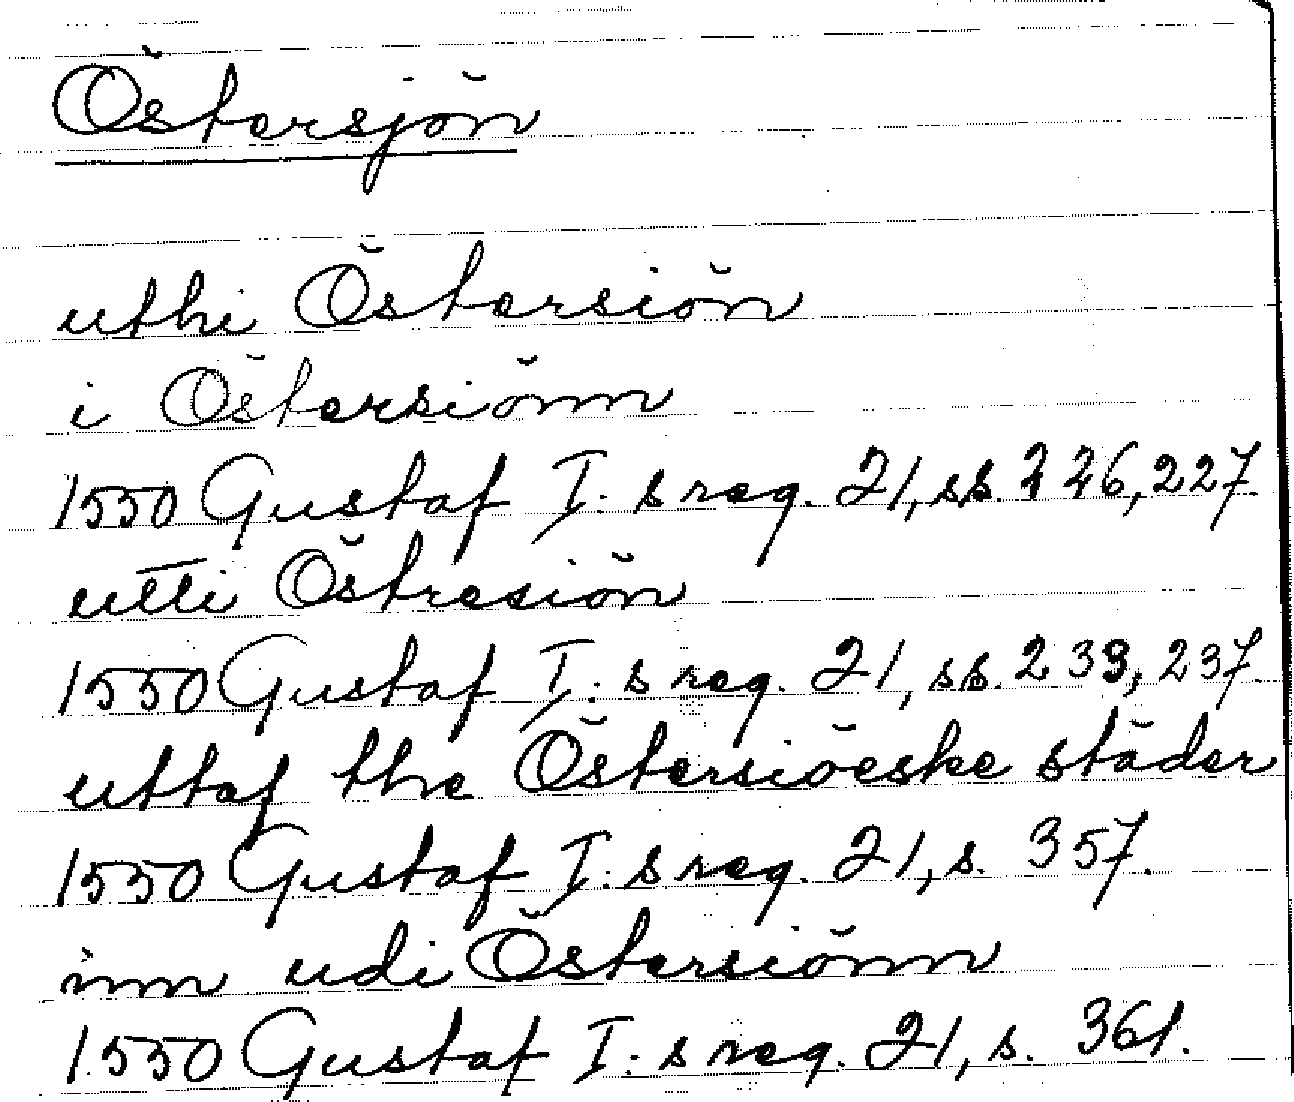 Östersjön
uthi Östersiön
i Östersiönn
1550 Gustaf I:s reg. 21, ss. 226, 227.
utti Östresiön
1550 Gustaf I:s reg. 21, ss. 239, 237.
uttaf the Östersiöeske städer
1550 Gustaf I:s reg. 21, s. 357.
inn udi Östersiönn
1550 Gustaf I:s reg. 21, s. 361.